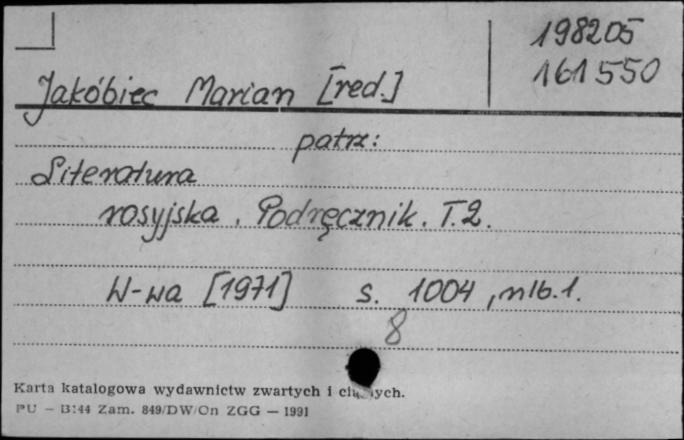 198205
161550
Jakóbiec Marian [red.]
patrz:
Literatura
rosyjska. Podręcznik. T.2.
W-wa [1971] s. 1004, nlb.1.
8
Karta katalogowa wydawnictw zwartych i
PU - B:44 Zam. 849/DW/On ZGG — 1991